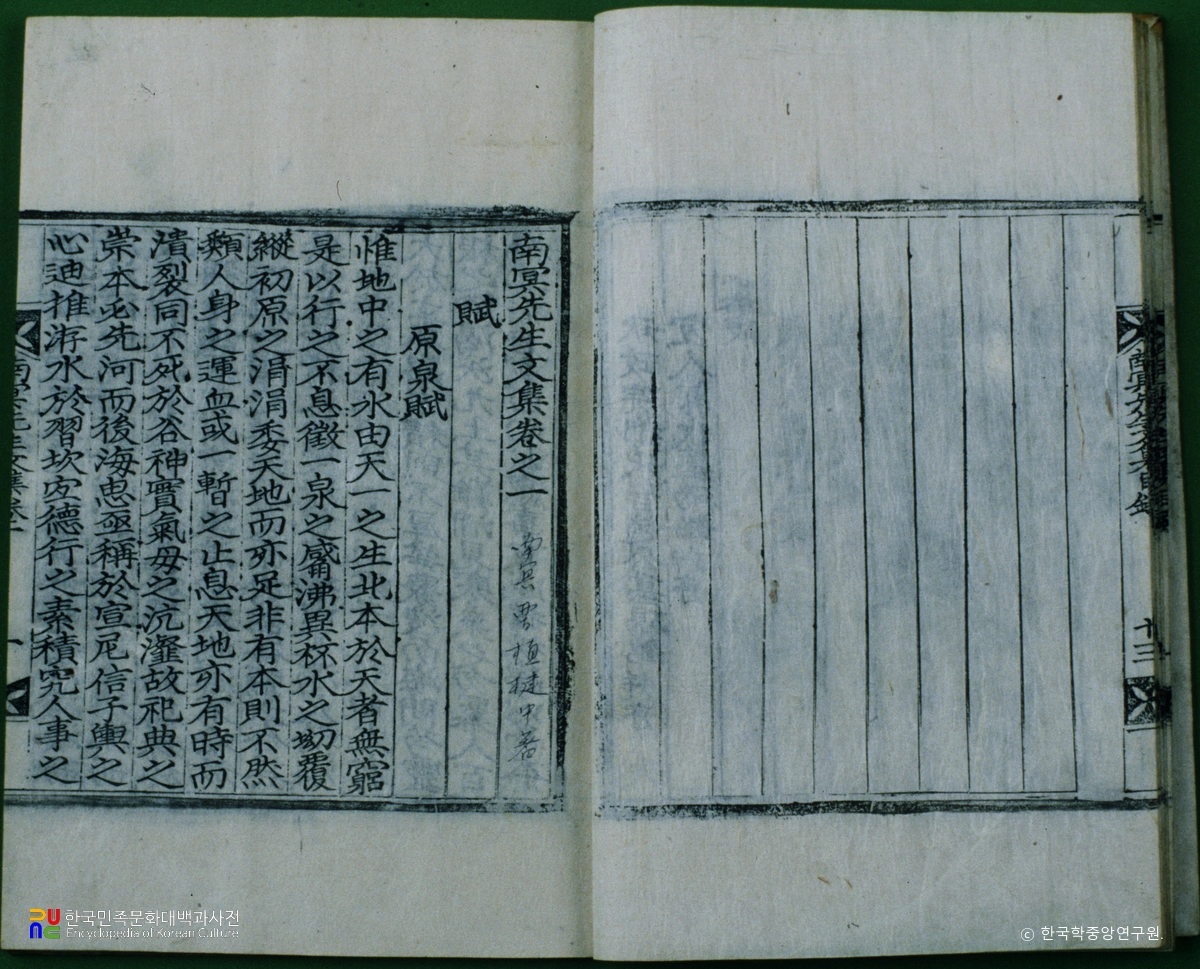 南冥先生文集目錄
十三
南冥先生文集卷之一
南冥曺植楗中著
賦
原泉賦
惟地中之有水由天一之生北本於天者無窮
是以行之不息徵一泉之觱沸異杯水之坳覆
縱初原之涓涓委天地而亦足非有本則不然
類人身之運血或一暫之止息天地亦有時而
潰裂同不死於谷神實氣母之沆瀣故祀典之
崇本必先河而後海思亟稱於宣尼信子輿之
心迪推洊水於習坎宜德行之素積究人事之
南冥先生文集卷一
一
한국민족문화대백과사전
Encyclopedia of Korean Culture
ⓒ 한국학중앙연구원.